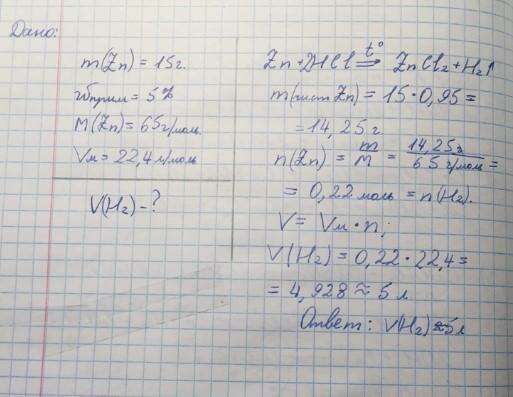 Дано:
m(Zn) = 15г.
wприм = 5%
M(Zn) = 65г/моль
Vм = 22,4 л/моль
V(H₂) - ?
Zn + 2HCl =t°=> ZnCl₂ + H₂↑
m(чист Zn) = 15·0,95 =
= 14,25 г
n(Zn) = m/M = 14,25г/65 г/моль =
= 0,22 моль = n(H₂).
V = Vм · n;
V(H₂) = 0,22 · 22,4 =
= 4,928 ≈ 5 л
Ответ: V(H₂) ≈ 5л